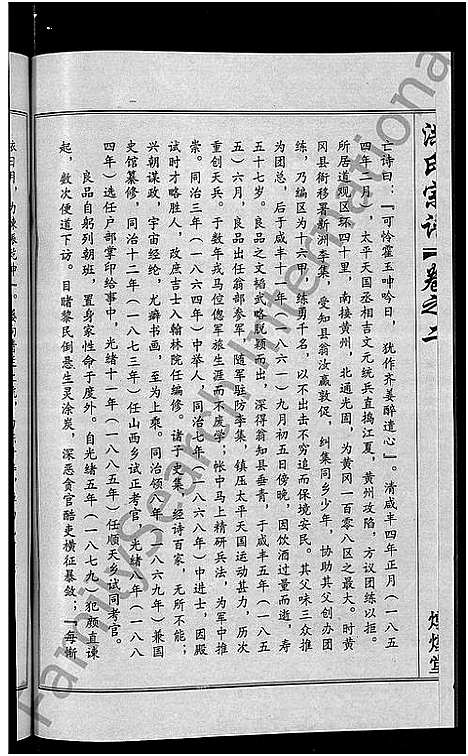 洪氏宗谱 卷之二
亡诗曰：『可怜霍玉呻吟日，犹作齐姜醉遣心』。清咸丰四年正月（一八五
四年二月），太平天国丞相吉文元统兵直捣江夏，黄州攻陷，方议团练以拒。
所居道观区环四十里，南接黄州，北通光固，为黄冈一百零八区之最大。时黄
冈县衙移署新洲李集，受知县翁汝瀛敦促，纠集同乡少年，协助其父创办团
练，乃编区为十六甲，练勇千名，以不出击不穷追而保境安民。其父味三众推
为团总，后于咸丰十一年（一八六一）九月初五日傍晚，因饮酒过量而逝，寿
五十七岁。良品之文韬武略脱颖而出，深得翁知县垂青，于咸丰五年（一八五
五）六月，良品出任翁部参军，随军驻防李集，镇压太平天国运动甚力，历次
重创天兵。于数年戎马倥偬军旅生涯而不废学；帐中马上精研兵法，为军中推
崇。同治三年（一八六四年）中举人，同治七年（一八六八年）中进士，因殿
试时才略胜人，改庶吉士入翰林院任编修。诸子史集，经诗百家，无所不能；
兴朝谋政，宇宙经纶，尤癖书画，至为上乘。同治领八年（一八六九年）兼国
史馆纂修，同治十二年（一八七三年）任山西乡试正考官，光绪八年（一八八
四年）选任户部掌印给事中，光绪十一年（一八八五年）任顺天乡试同考官。
良品自躬列朝班，置身家性命于度外。自光绪五年（一八七九）犯颜直谏
起，数次便道下访。目睹黎民倒悬生灵涂炭，深恶贪官酷吏横征暴敛；一每渐
FamilySearch International